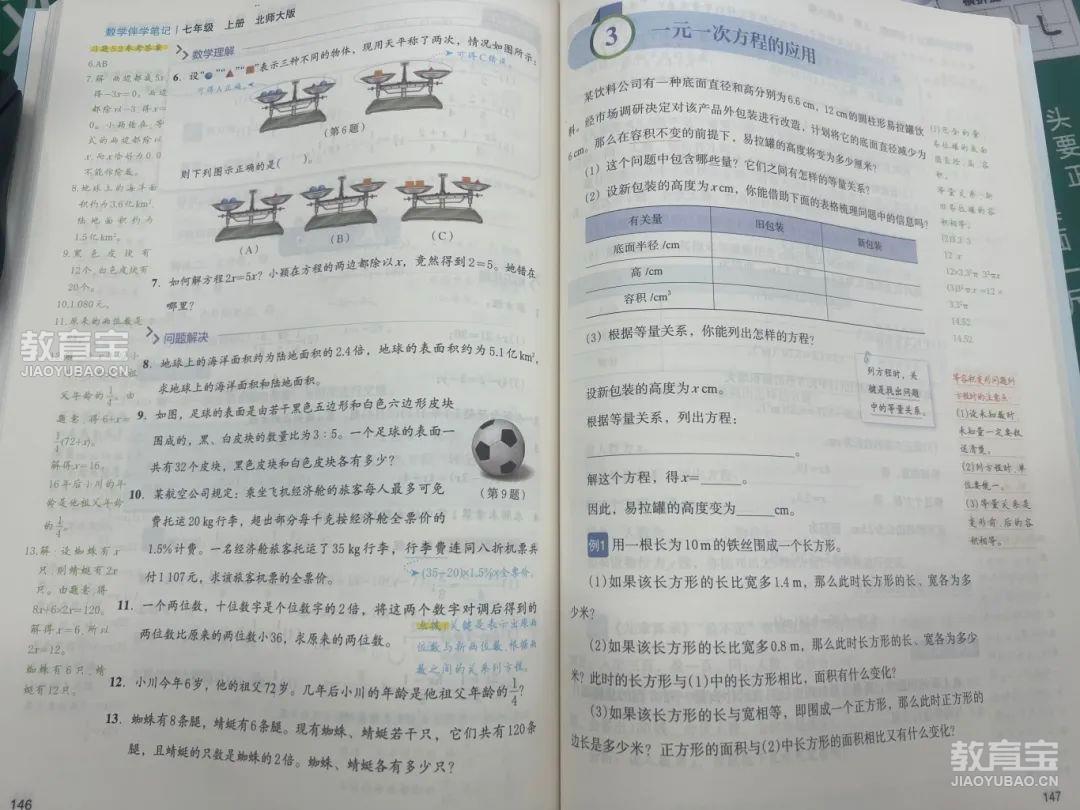 数学伴学笔记 七年级 上册 北师大版
习题5.2参考答案
6.AB
7.解:两边都减5x
得-3x=0,两边
都除以-3,得x=
0。小颖错在,等
式的两边都除以
x,而x恰好为0,0
不能作除数。
8.地球上的海洋面
积约为3.6亿km²,
陆地面积约为
1.5亿km²。
9.黑色皮块有
12个,白色皮块有
20个。
10.1080元。
11.原来的两位数是
父年龄的1/4。由
题意,得6+x=
1/4(72+x)。
解得x=16。
16年后小川的年
龄是他祖父年龄
的1/4。
13.解:设蜘蛛有x
只,则蜻蜓有2x
只。由题意,得
8x+6×2x=120。
解得x=6,所以
2x=12。
蜘蛛有6只,蜻
蜓有12只。
数学理解
6. 设“●”“▲”“■”表示三种不同的物体,现用天平称了两次,情况如图所示:
可得A正确。
可得C错误。
(第6题)
则下列图示正确的是( )。
(A)
(B)
(C)
7. 如何解方程2x=5x?小颖在方程的两边都除以x,竟然得到2=5。她错在
哪里?
问题解决
8. 地球上的海洋面积约为陆地面积的2.4倍,地球的表面积约为5.1亿km²,
求地球上的海洋面积和陆地面积。
9. 如图,足球的表面是由若干黑色五边形和白色六边形皮块
围成的,黑、白皮块的数量比为3:5。一个足球的表面一
共有32个皮块,黑色皮块和白色皮块各有多少?
(第9题)
10. 某航空公司规定:乘坐飞机经济舱的旅客每人最多可免
费托运20 kg行李,超出部分每千克按经济舱全票价的
1.5%计费。一名经济舱旅客托运了35 kg行李,行李费连同八折机票共
付1 107元,求该旅客机票的全票价。
(35-20)×1.5%×全票价。
11. 一个两位数,十位数字是个位数字的2倍,将这两个数字对调后得到的
两位数比原来的两位数小36,求原来的两位数。
点拨:关键是表示出原两
位数与新两位数,根据两
数之间的关系列方程。
12. 小川今年6岁,他的祖父72岁。几年后小川的年龄是他祖父年龄的1/4?
13. 蜘蛛有8条腿,蜻蜓有6条腿。现有蜘蛛、蜻蜓若干只,它们共有120条
腿,且蜻蜓的只数是蜘蛛的2倍。蜘蛛、蜻蜓各有多少只?
146
教育宝
JIAOYUBAO.CN
3 一元一次方程的应用
某饮料公司有一种底面直径和高分别为6.6 cm,12 cm的圆柱形易拉罐饮
料。经市场调研决定对该产品外包装进行改造,计划将它的底面直径减少为
6 cm。那么在容积不变的前提下,易拉罐的高度将变为多少厘米?
(1)这个问题中包含哪些量?它们之间有怎样的等量关系?
(2)设新包装的高度为x cm,你能借助下面的表格梳理问题中的信息吗?
有关量 旧包装 新包装
底面半径/cm
高/cm
容积/cm³
(3)根据等量关系,你能列出怎样的方程?
列方程时,关
键是找出问题
中的等量关系。
设新包装的高度为x cm。
根据等量关系,列出方程:
。
解这个方程,得x= 。
因此,易拉罐的高度变为 cm。
例1 用一根长为10 m的铁丝围成一个长方形。
(1)如果该长方形的长比宽多1.4 m,那么此时长方形的长、宽各为多
少米?
(2)如果该长方形的长比宽多0.8 m,那么此时长方形的长、宽各为多少
米?此时的长方形与(1)中的长方形相比,面积有什么变化?
(3)如果该长方形的长与宽相等,即围成一个正方形,那么此时正方形的
边长是多少米?正方形的面积与(2)中长方形的面积相比又有什么变化?
等量关系:新
旧易拉罐的容
积相等。
(2)3.3 3
12 x
12×3.3²π 3²πx
(3)3²π·x=12×
3.3²π
14.52
14.52
等容积变形问题列
方程时的注意点
(1)设未知数时,
未知量一定要叙
述清楚。
(2)列方程时,单
位要统一。
(3)等量关系是
变形前、后的容
积相等。
头
要
正
教育宝
JIAOYUBAO.CN
147